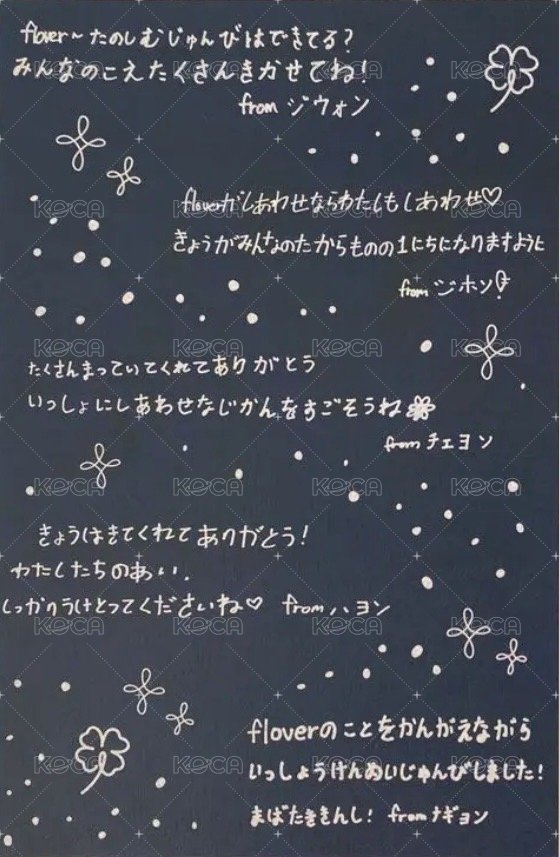 flover～たのしむじゅんびはできてる？
みんなのこえたくさんきかせてね！
from ジウォン
floverがしあわせならわたしもしあわせ♡
きょうがみんなのたからものの1にちになりますように
from ジホン
たくさんまっていてくれてありがとう
いっしょにしあわせなじかんをすごそうね
from チェヨン
きょうはきてくれてありがとう！
わたしたちのあい、
しっかりうけとってくださいね♡ from ハヨン
floverのことをかんがえながら
いっしょうけんめいじゅんびしました！
まばたききんし！ from ナギョン
KOCA